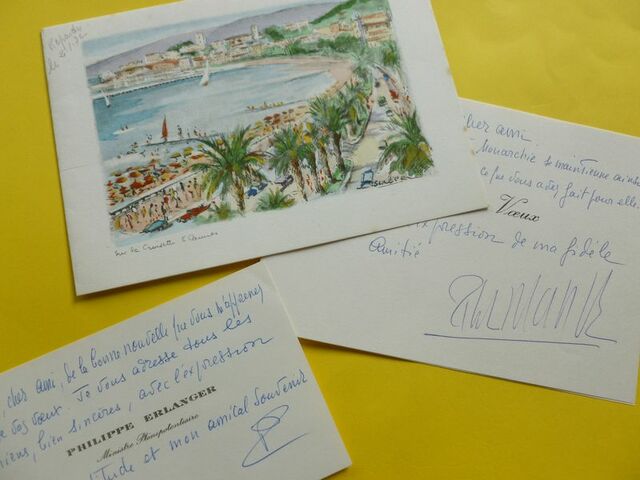 Sur la Croisette à Cannes
cher ami
Monarchie se maintienne ainsi
ce que vous avez fait pour elle.
Vœux
expression de ma fidèle
Amitié
cher ami, de la bonne nouvelle que vous m'apprenez
vos vœux. Je vous adresse tous les
miens, bien sincères, avec l'expression
PHILIPPE ERLANGER
Ministre Plénipotentiaire
et mon amical souvenir